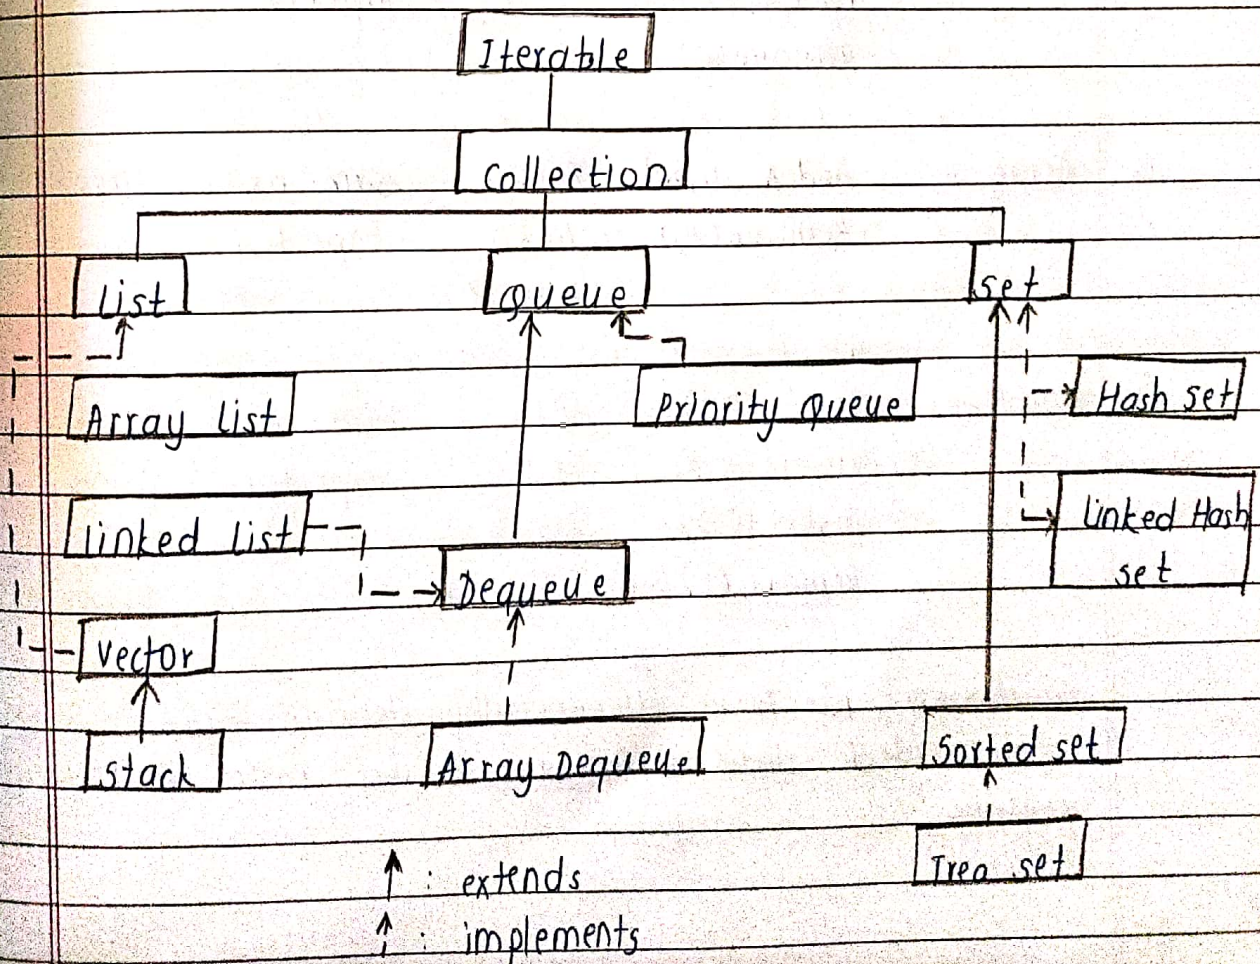 Iterable
Collection
List
Queue
Set
Array List
Priority Queue
Hash set
Linked List
Linked Hash
set
Dequeue
Vector
Stack
Array Dequeue
Sorted set
Tree set
: extends
: implements